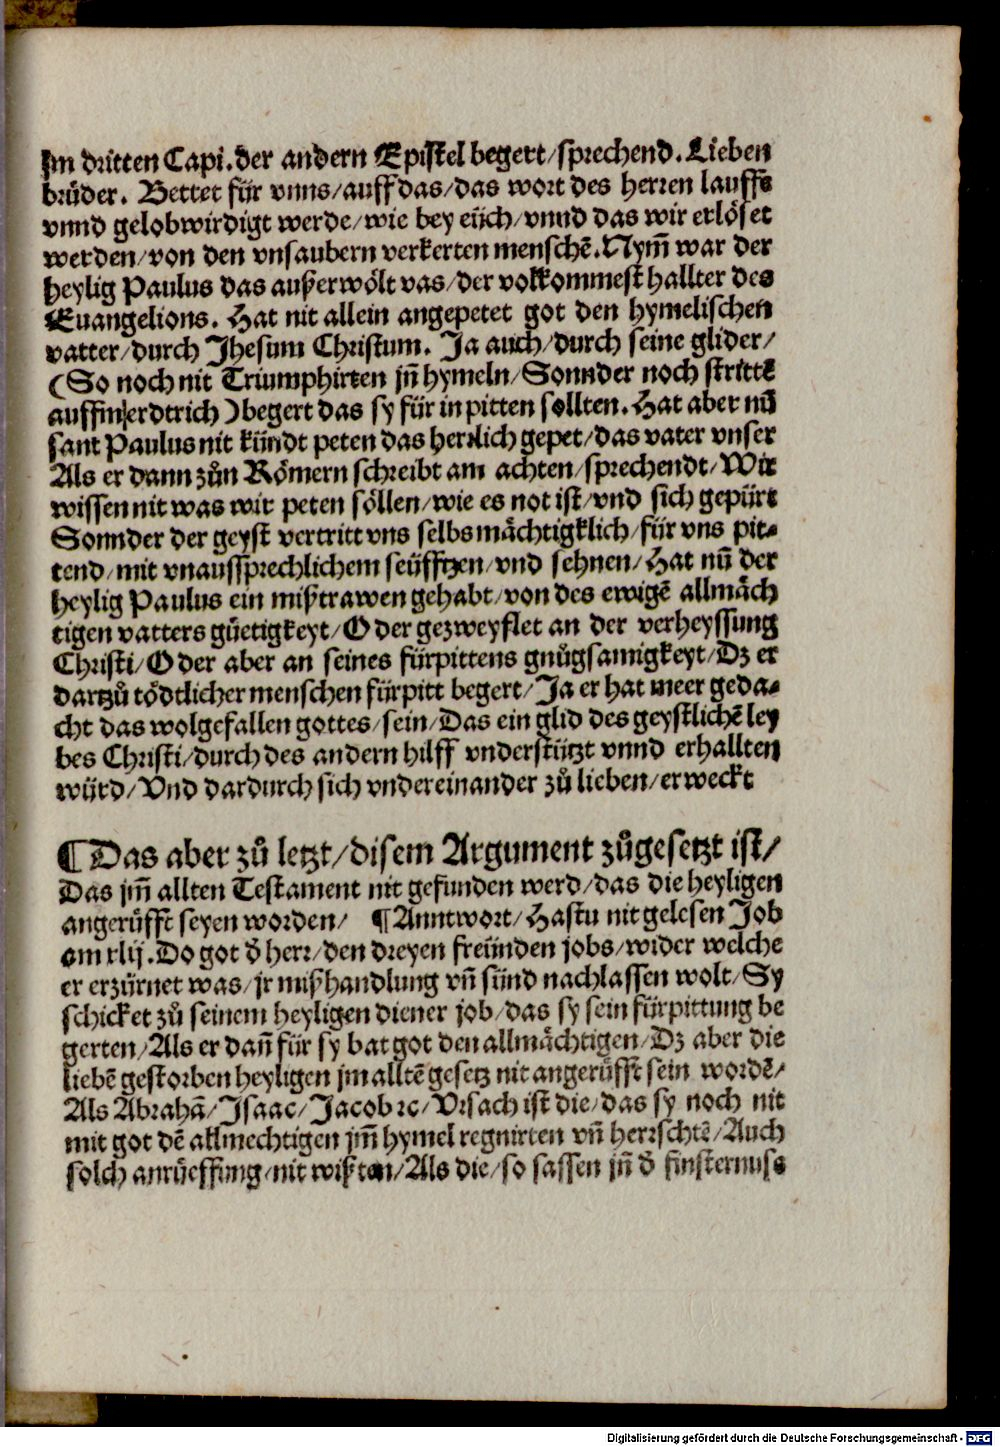 Im dritten Capi. der andern Epistel begert/sprechend. Lieben
brůder. Bettet für vnns/auff das/das wort des herren lauffe
vnnd gelobwirdigt werde/wie bey eüch/vnnd das wir erlöset
werden/von den vnsaubern verkerten menschē. Nym̄ war der
heylig Paulus das außerwölt vas/der volkommest hallter des
Euangelions. Hat nit allein angepetet got den hymelischen
vatter/durch Jhesum Christum. Ja auch/durch seine glider/
(So noch nit Triumphirten jn̄ hymeln/Sonnder noch strittē
auff in erdtrich) begert das sy für in pitten sollten. Hat aber nū
sant Paulus nit kündt peten das herrlich gepet/das vater vnser
Als er dann zůn Römern schreibt am achten/sprechendt/Wir
wissen nit was wir peten söllen/wie es not ist/vnd sich gepürt
Sonnder der geyst vertritt vns selbs mächtigklich/für vns pit-
tend/mit vnaussprechlichem seüfftzen/vnd sehnen/Hat nū der
heylig Paulus ein mißtrawen gehabt/von des ewigē allmäch
tigen vatters gůetigkeyt/Oder gezweyflet an der verheyssung
Christi/Oder aber an seines fürpittens gnůgsamigkeyt/Dz er
dartzů tödtlicher menschen fürpitt begert/Ja er hat meer geda-
cht das wolgefallen gottes/sein/Das ein glid des geystlichē ley
bes Christi/durch des andern hilff vnderstützt vnnd erhallten
würd/Vnd dardurch sich vndereinander zů lieben/erweckt
¶ Das aber zů letzt/disem Argument zůgesetzt ist/
Das jm̄ allten Testament nit gefunden werd/das die heyligen
angerůfft seyen worden/ ¶ Anntwort/Hastu nit gelesen Job
am xlij. Do got d̄ herr/den dreyen freünden jobs/wider welche
er erzürnet was/jr mißhandlung vn̄ sünd nachlassen wolt/Sy
schicket zů seinem heyligen diener job/das sy sein fürpittung be
gerten/Als er dan̄ für sy bat got den allmächtigen/Dz aber die
liebē gestorben heyligen jm alltē gesetz nit angerůfft sein wordē/
Als Abrahā/Isaac/Jacob ꝛc/Vrsach ist die/das sy noch nit
mit got dē allmechtigen jm̄ hymel regnirten vn̄ herrschtē/Auch
solch anrůeffung/nit wißten/Als die/so sassen jn̄ d̄ finsternuss
Digitalisierung gefördert durch die Deutsche Forschungsgemeinschaft - DFG